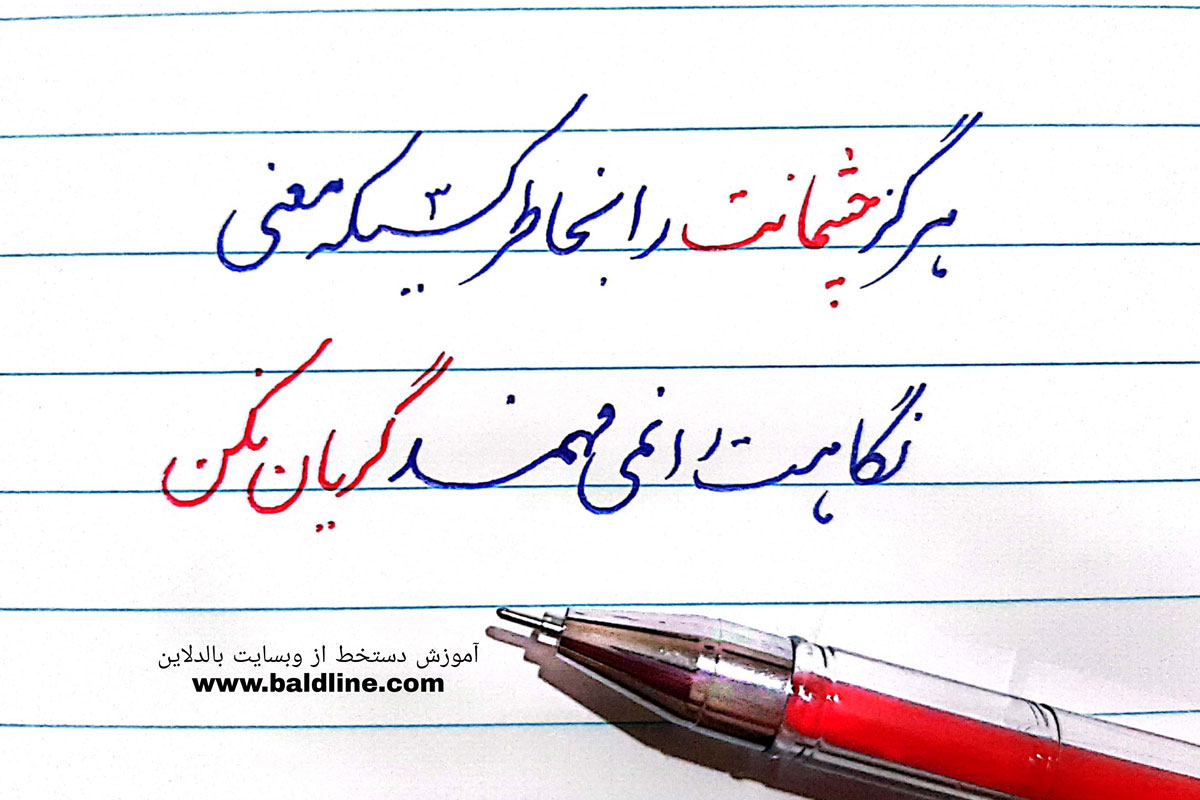 هرگز چشمانت را بخاطر کسیکه معنی
نگاهت را نمی فهمند گریان نکن
آموزش دستخط از وبسایت بالدلاین
www.baldline.com